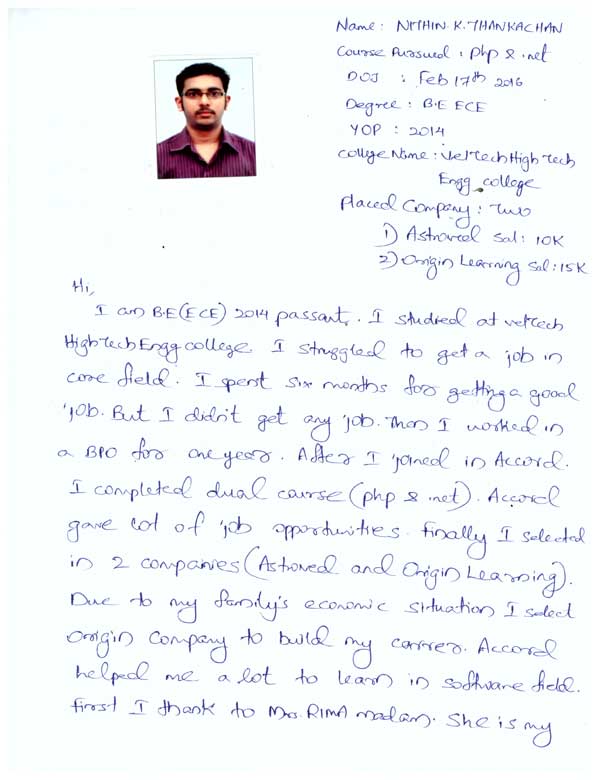 Name: NITHIN.K.THANKACHAN
Course Pursued: php & .net
DOJ : Feb 17th 2016
Degree : B.E ECE
YOP : 2014
College Name: VelTech High Tech
Engg college
Placed Company: Two
1) Astroved Sal: 10K
2) Origin Learning Sal: 15K
Hi,
I am B.E(ECE) 2014 passant. I studied at veltech
HighTech Engg college. I struggled to get a job in
core field. I spent six months for getting a good
job. But I didn't get any job. Then I worked in
a BPO for one year. After I joined in Accord.
I completed dual course (php & .net). Accord
gave lot of job opportunities. Finally I selected
in 2 companies (Astroved and Origin Learning).
Due to my family's economic situation I select
Origin Company to build my carrer. Accord
helped me a lot to learn in software field.
First I thank to Mrs. RIMA madam. She is my